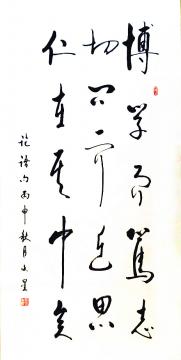 博学而笃志
切问而近思
仁在其中矣
论语句丙申秋月小星